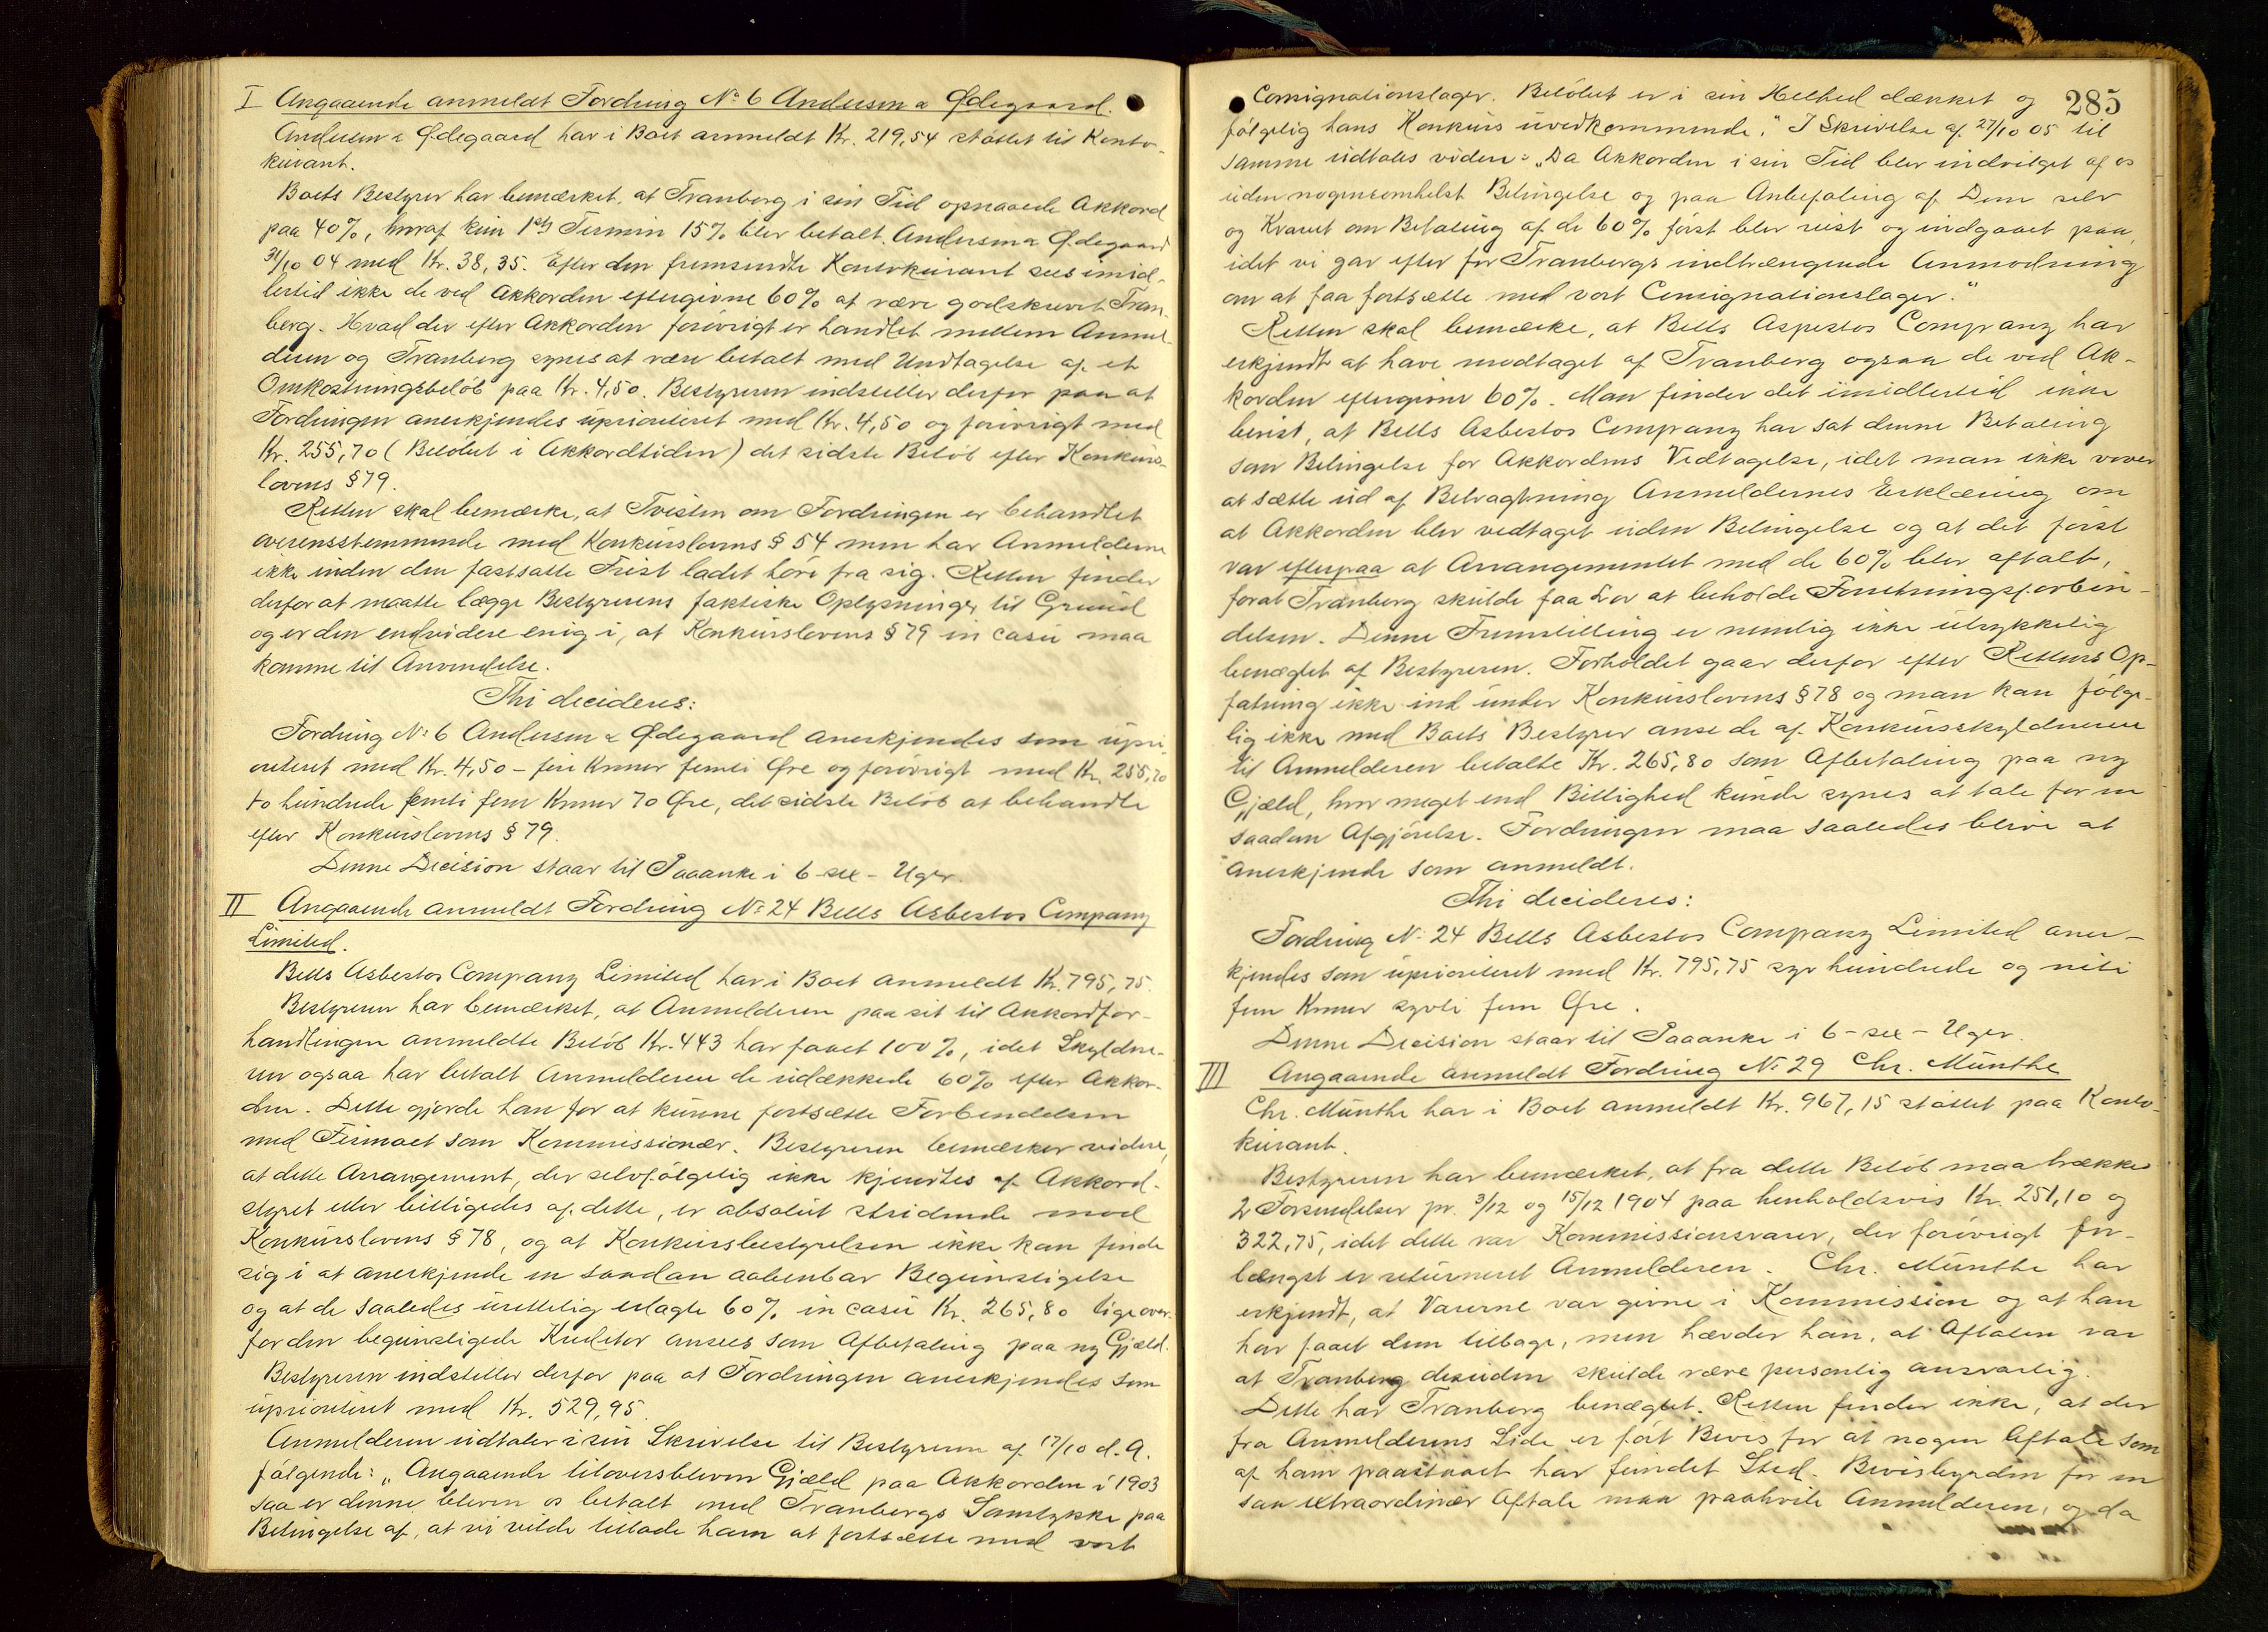 I Angaaende anmeldt Fordring No 6 Andersen & Ødegaard.
Andersen & Ødegaard har i Boet anmeldt Kr. 219,54 støttet til Konto-
kurant.
Boets Bestyrer har bemærket, at Tranberg i sin Tid opnaaede Akkord
paa 40%, hvoraf kun 1ste Termin 15% blev betalt Andersen & Ødegaard
31/10 04 med Kr. 38,35. Efter den fremsendte Kontokurant sees imid-
lertid ikke de ved Akkorden eftergivne 60% at være godskrevet Tran-
berg. Hvad der efter Akkorden forøvrigt er handlet mellem Anmel-
deren og Tranberg synes at være betalt med Undtagelse af et
Omkostningsbeløb paa Kr. 4,50. Bestyreren indstiller derfor paa at
Fordringen anerkjendes uprioriteret med Kr. 4,50 og forøvrigt med
Kr. 255,70 (Beløbet i Akkordtiden) det sidste Beløb efter Konkurs-
lovens § 79.
Retten skal bemærke, at Tvisten om Fordringen er behandlet
overensstemmende med Konkurslovens § 54 men har Anmelderne
ikke inden den fastsatte Frist ladet høre fra sig. Retten finder
derfor at maatte lægge Bestyrerens faktiske Oplysninger til Grund
og er den endvidere enig i, at Konkurslovens § 79 in casu maa
komme til Anvendelse.
Thi decideres:
Fordring No 6 Andersen & Ødegaard anerkjendes som upri-
oriteret med Kr. 4,50 – fire Kroner femti Øre og forøvrigt med Kr. 255,70
to hundrede femti fem Kroner 70 Øre, det sidste Beløb at behandle
efter Konkurslovens § 79.
Denne Decision staar til Paaanke i 6 – sex – Uger.
II Angaaende anmeldt Fordring No 24 Bells Asbestos Company
Limited.
Bells Asbestos Company Limited har i Boet anmeldt Kr. 795,75.
Bestyreren har bemærket, at Anmelderen paa sit til Akkordfor-
handlingen anmeldte Beløb Kr. 443 har faaet 100%, idet Skyldne-
ren ogsaa har betalt Anmelderen de udækkede 60% efter Akkor-
den. Dette gjorde han for at kunne fortsætte Forbindelsen
med Firmaet som Kommissionær. Bestyreren bemærker videre,
at dette Arrangement, der selvfølgelig ikke kjendtes af Akkord-
styret eller billigedes af dette, er absolut stridende mod
Konkurslovens § 78, og at Konkursbestyrelsen ikke kan finde
sig i at anerkjende en saadan aabenbar Begunstigelse
og at de saaledes urettelig erlagte 60%, in casu Kr. 265,80 ligeover-
for den begunstigede Kreditor ansees som Afbetaling paa ny Gjæld.
Bestyreren indstiller derfor paa at Fordringen anerkjendes som
uprioriteret med Kr. 529,95.
Anmelderen udtaler i sin Skrivelse til Bestyreren af 17/10 d.A.
følgende: „Angaaende tiloversbleven Gjæld paa Akkorden i 1903
saa er denne bleven os betalt med Tranbergs Samtykke paa
Betingelse af, at vi vilde tillade ham at fortsætte med vort
285
Consignationslager. Beløbet er i sin Helhed dækket og
følgelig hans Konkurs uvedkommende." I Skrivelse af 27/10 05 til
samme udtales videre: „Da Akkorden i sin Tid blev indvilget af os
uden nogensomhelst Betingelse og paa Anbefaling af Dem selv
og Kravet om Betaling af de 60% først blev reist og indgaaet paa,
idet vi gav efter for Tranbergs indtrængende Anmodning
om at faa fortsætte med vort Consignationslager."
Retten skal bemærke, at Bells Aspestos Company har
erkjendt at have modtaget af Tranberg ogsaa de ved Ak-
korden eftergivne 60%. Man finder det imidlertid ikke
bevist, at Bells Asbestos Company har sat denne Betaling
som Betingelse for Akkordens Vedtagelse, idet man ikke vover
at sætte ud af Betragtning Anmeldernes Erklæring om
at Akkorden blev vedtaget uden Betingelse og at det først
var efterpaa at Arrangementet med de 60% blev aftalt,
forat Tranberg skulde faa Lov at beholde Forretningsforbin-
delsen. Denne Fremstilling er nemlig ikke utrykkelig
benægtet af Bestyreren. Forholdet gaar derfor efter Rettens Op-
fatning ikke ind under Konkurslovens § 78 og man kan følge-
lig ikke med Boets Bestyrer anse de af Konkursskyldneren
til Anmelderen betalte Kr. 265,80 som Afbetaling paa ny
Gjæld, hvor meget end Billighed kunde synes at tale for en
saadan Afgjørelse. Fordringen maa saaledes blive at
anerkjende som anmeldt.
Thi decideres:
Fordring No 24 Bells Asbestos Company Limited aner-
kjendes som uprioriteret med Kr. 795,75 syv hundrede og niti
fem Kroner sytti fem Øre.
Denne Decision staar til Paaanke i 6 – sex – Uger.
III Angaaende anmeldt Fordring No 29 Chr. Munthe
Chr. Munthe har i Boet anmeldt Kr. 967,15 støttet paa Konto-
kurant.
Bestyreren har bemærket, at fra dette Beløb maa trækkes
2 Forsendelser pr. 3/12 og 15/12 1904 paa henholdsvis Kr. 251,10 og
322,75, idet dette var Kommissionsvarer, der forøvrigt for-
længst er returneret Anmelderen. Chr. Munthe har
erkjendt, at Varerne var givne i Kommission og at han
har faaet dem tilbage, men hævder han, at Aftalen var
at Tranberg desuden skulde være personlig ansvarlig.
Dette har Tranberg benægtet. Retten finder ikke, at der
fra Anmelderens Side er ført Bevis for at nogen Aftale som
af ham paastaaet har fundet Sted. Bevisbyrden for en
saa extraordinær Aftale maa paahvile Anmelderen, og da